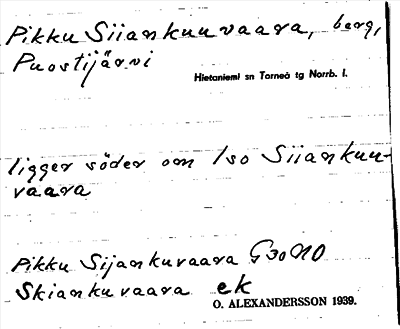 Pikku Siiankuuvaara, berg,
Puostijärvi
Hietaniemi sn Torneå tg Norrb. l.
ligger söder om Iso Siiankuu-
vaara
Pikku Sijankuvaara G30N0
Skiankuvaara ek
O. ALEXANDERSSON 1939.